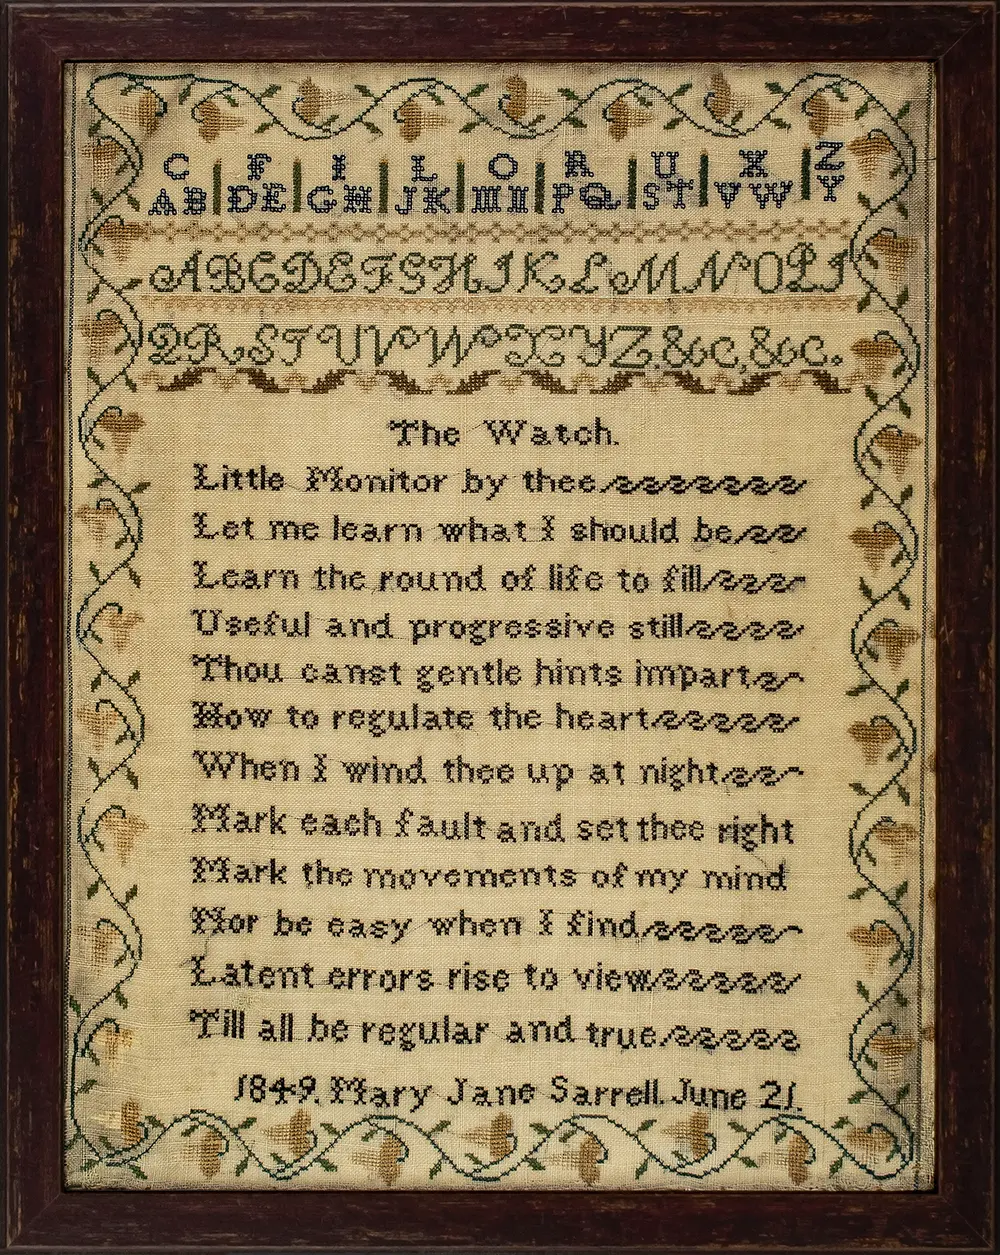 C F I L O R U X Z
AB DE GH JK MN PQ ST VW Y
ABCDEFGHIKLMNOPI
QRSTUVWXYZ.&c,&c.
The Watch.
Little Monitor by thee
Let me learn what I should be
Learn the round of life to fill
Useful and progressive still
Thou canst gentle hints impart
How to regulate the heart
When I wind thee up at night
Mark each fault and set thee right
Mark the movements of my mind
Nor be easy when I find
Latent errors rise to view
Till all be regular and true
1849. Mary Jane Sarrell. June 21.